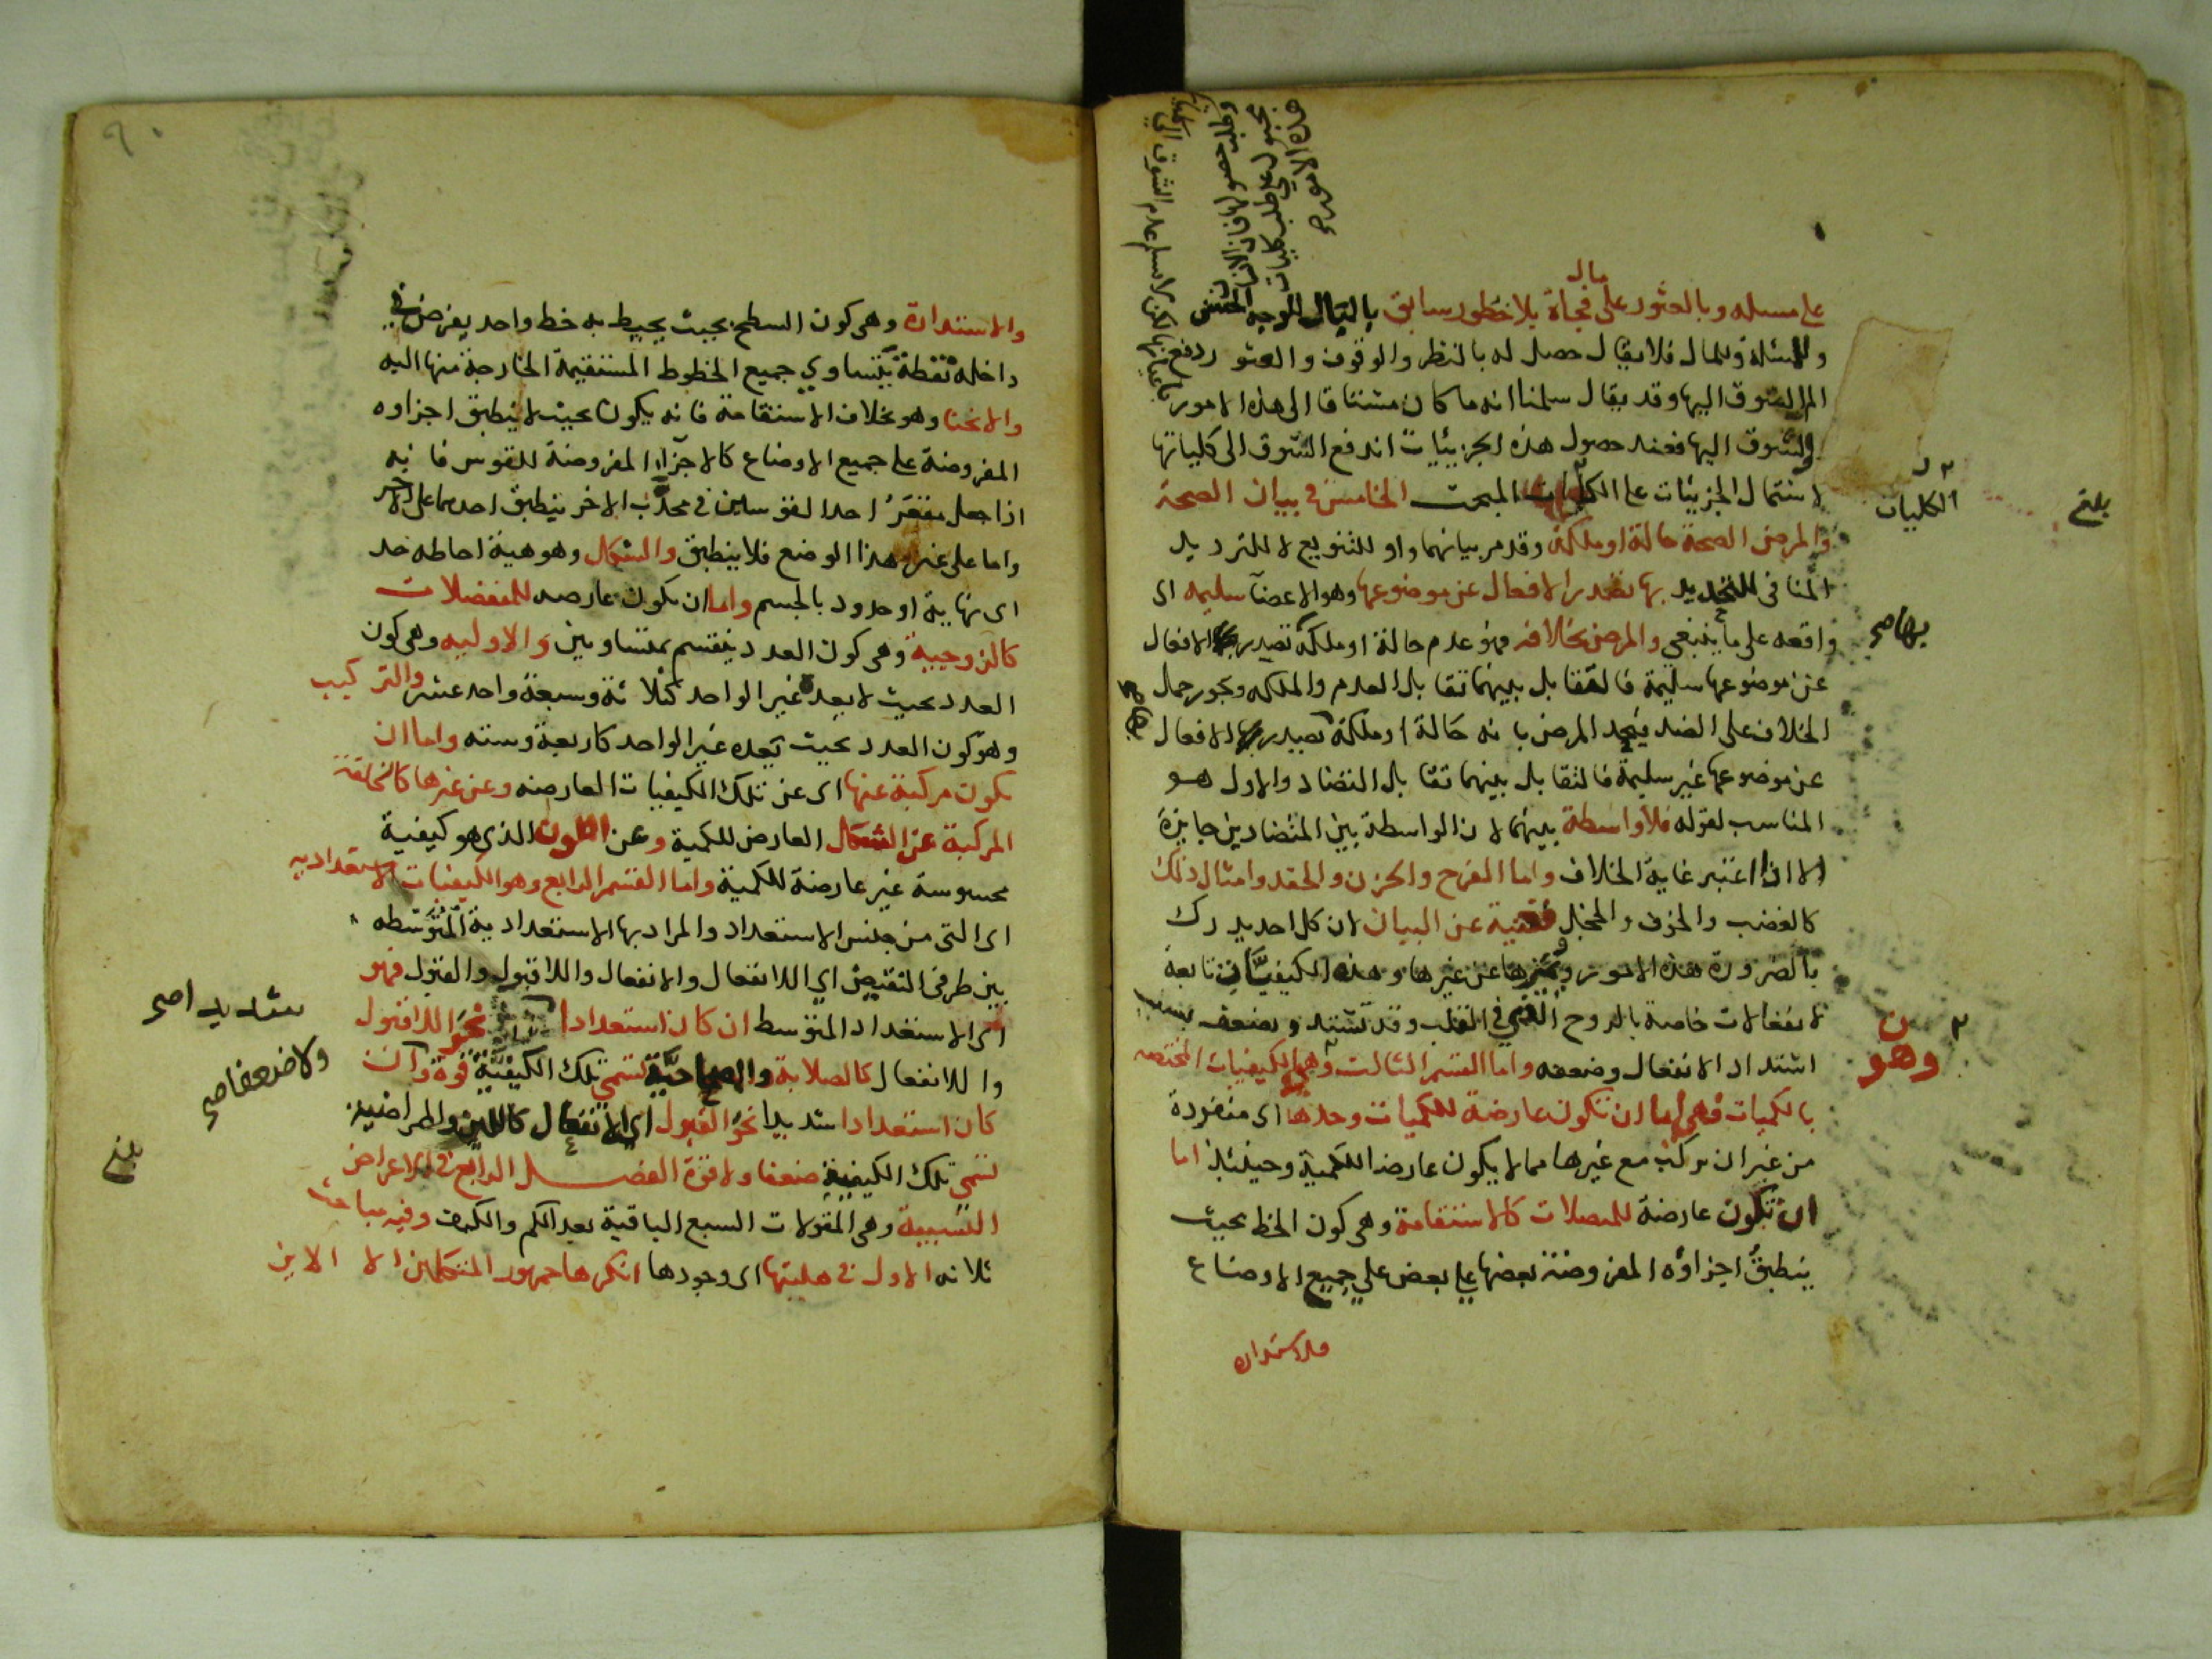 على مسله وبالعثور على مال فجأة بلا خطور سابق بالبال الوجه الحسن
وللمسئلة وللمال فلا يقال حصل له بالنظر والوقوف والعثور دفع
الم الشوق اليها وقد يقال سلمنا انه ما كان مشتاقا الى هذه الامور
والشوق اليها فعند حصول هذه الجزئيات اندفع الشوق الى كلياتها
لاشتمال الجزئيات على الكليات المبحث الخامس في بيان الصحة
والمرض الصحة حالة او ملكة وقد مر بيانهما واو للتنويع لا للترديد
المنافى للتحديد بها تصدر الافعال عن موضوعها وهو الاعضآ سليمه اى
واقعه على ما ينبغى والمرض بخلافه فهو عدم حالة او ملكة تصدر بها الافعال
عن موضوعها سليمة فالتقابل بينهما تقابل العدم والملكه ويجوز حمل
الخلاف على الضد فيحد المرض بانه حالة او ملكة تصدر بها الافعال
عن موضوعها غير سليمة فالتقابل بينهما تقابل التضاد والاول هو
المناسب لقوله فلا واسطة بينهما لان الواسطة بين المتضادين جايزة
الا اذا اعتبر غاية الخلاف واما الفرح والحزن والحقد وامثال ذلك
كالغضب والخوف والخجل فغنية عن البيان لان كل احد يدرك
بالضرورة هذه الامور ويميزها عن غيرها وهذه الكيفيات تابعة
لانفعالات خاصة بالروح الذى في القلب وقد تشتد وتضعف بسبب
اشتداد الانفعال وضعفه واما القسم الثالث وهى الكيفيات المختصه
بالكميات فهى اما ان تكون عارضة للكميات وحدها اى منفردة
من غير ان تركب مع غيرها مما لا يكون عارضا للكمية وحينئذ اما
ان تكون عارضة للمتصلات كالاستقامة وهى كون الخط بحيث
ينطبق اجزاؤه المفروضة بعضها على بعض على جميع الاوضاع
والاستداره
هذه الامور صح
الكليات
بلغ
بها صح
بها صح
وهو
٩٠
والاستدارة وهى كون السطح بحيث يحيط به خط واحد يفرض في
داخله نقطة يتساوى جميع الخطوط المستقيمة الخارجة منها اليه
والانحنا وهو بخلاف الاستقامة فانه يكون بحيث لا ينطبق اجزاوه
المفروضة على جميع الاوضاع كالاجزآ المفروضة للقوس فانه
اذا جعل مقعر احد القوسين في محدب الاخر ينطبق احدهما على الاخر
واما على غير هذا الوضع فلا ينطبق والشكل وهو هية احاطه حد
اى نهاية او حدود بالجسم واما ان تكون عارضه للمنفصلات
كالزوجية وهى كون العدد ينقسم بمتساويين والاوليه وهى كون
العدد بحيث لا يعده غير الواحد كثلاثة وسبعة واحد عشر والتركيب
وهو كون العدد بحيث يعده غير الواحد كاربعة وسته واما ان
تكون مركبة عنها اى عن تلك الكيفيات العارضه وعن غيرها كالخلقة
المركبة عن الشكل العارض للكمية وعن اللون الذى هو كيفية
محسوسة غير عارضة للكمية واما القسم الرابع وهو الكيفيات الاستعداديه
اى التى من جنس الاستعداد والمراد بها الاستعدادية المتوسطه
بين طرفى النقيض اي اللا انفعال والانفعال واللاقبول والقبول فهو
اى الاستعداد المتوسط ان كان استعدادا نحو اللاقبول
واللا انفعال كالصلابة والمصحاحية تسمى تلك الكيفية قوة وان
كان استعدادا شديدا نحو القبول اى الانفعال كاللين والممراضية
تسمى تلك الكيفية ضعفا ولا قوة الفصل الرابع في الاعراض
النسبية وهى المقولات السبع الباقية بعد الكم والكيف وفيه مباحث
ثلاثه الاول في هليتها اى وجودها انكرها جمهور المتكلمين الا الاين
شديدا صح
ولا ضعفا صح
بلغ